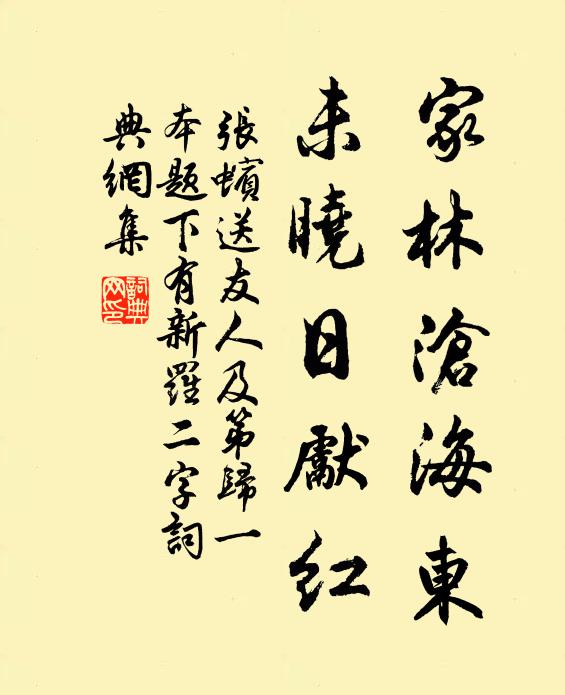 家林滄海東
未曉日獻紅
張蠙送友人及第歸一
本題下有新羅二字詞
典網集
詞典網印